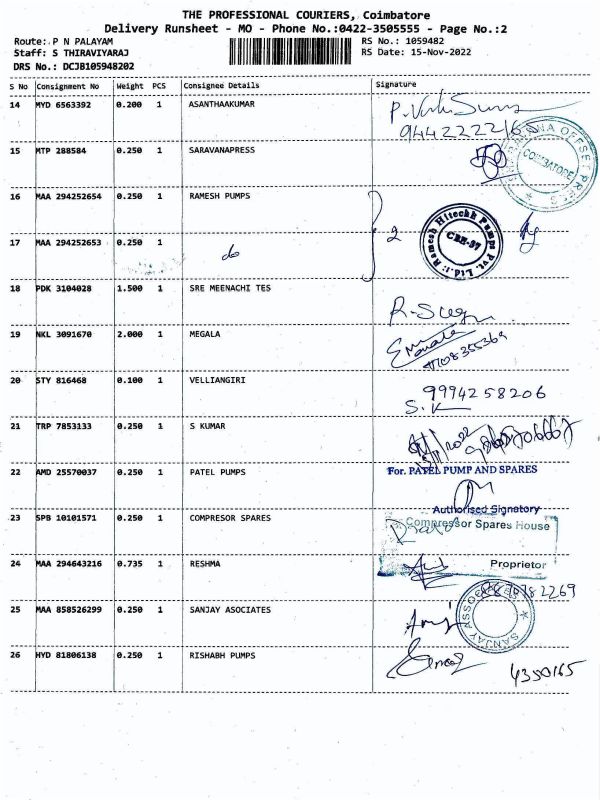 THE PROFESSIONAL COURIERS, Coimbatore
Delivery Runsheet - MO - Phone No.:0422-3505555 - Page No.:2
Route: P N PALAYAM RS No.: 1059482
Staff: S THIRAVIYARAJ RS Date: 15-Nov-2022
DRS No.: DCJB105948202
S No Consignment No Weight PCS Consignee Details Signature
14 MYD 6563392 0.200 1 ASANTHAAKUMAR
15 MTP 288584 0.250 1 SARAVANAPRESS
COIMBATORE
16 MAA 294252654 0.250 1 RAMESH PUMPS
Ramesh Hitechh Pumps Pvt. Ltd.
CBE-37
2
17 MAA 294252653 0.250 1 do
18 PDK 3104028 1.500 1 SRE MEENACHI TES
19 NKL 3091670 2.000 1 MEGALA
20 STY 816468 0.100 1 VELLIANGIRI
9994258206
S.K
21 TRP 7853133 0.250 1 S KUMAR
22 AMD 25570037 0.250 1 PATEL PUMPS
For. PATEL PUMP AND SPARES
Authorised Signatory
23 SPB 10101571 0.250 1 COMPRESOR SPARES
Compressor Spares House
Proprietor
24 MAA 294643216 0.735 1 RESHMA
25 MAA 858526299 0.250 1 SANJAY ASOCIATES
SANJAY ASSOCIATES
26 HYD 81806138 0.250 1 RISHABH PUMPS
4350165